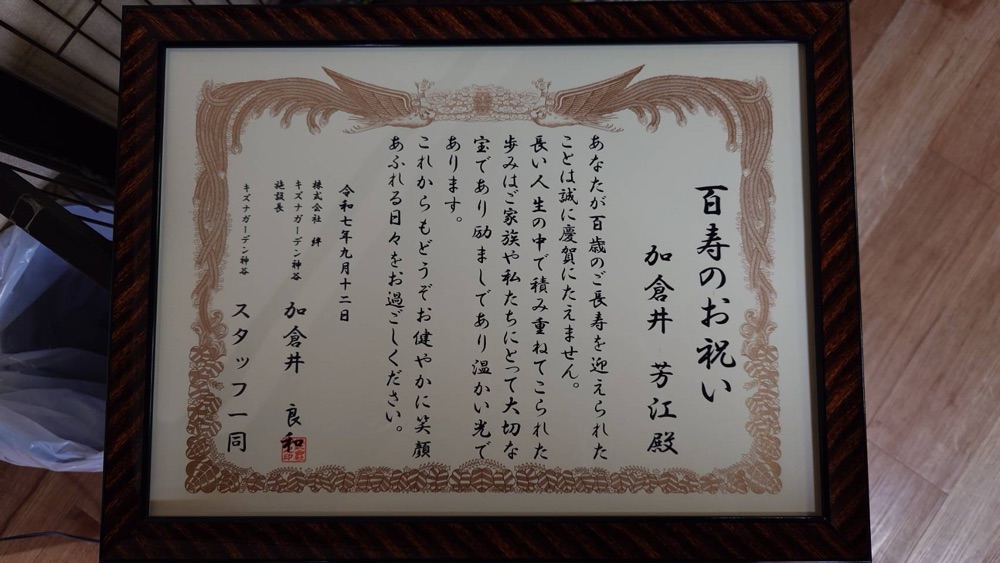 百寿のお祝い
加倉井 芳江 殿
あなたが百歳のご長寿を迎えられた
ことは誠に慶賀にたえません。
長い人生の中で積み重ねてこられた
歩みはご家族や私たちにとって大切な
宝であり励ましであり温かい光で
あります。
これからもどうぞお健やかに笑顔
あふれる日々をお過ごしください。
令和七年九月十二日
株式会社 絆
キズナガーデン神谷
施設長 加倉井 良和
キズナガーデン神谷 スタッフ一同